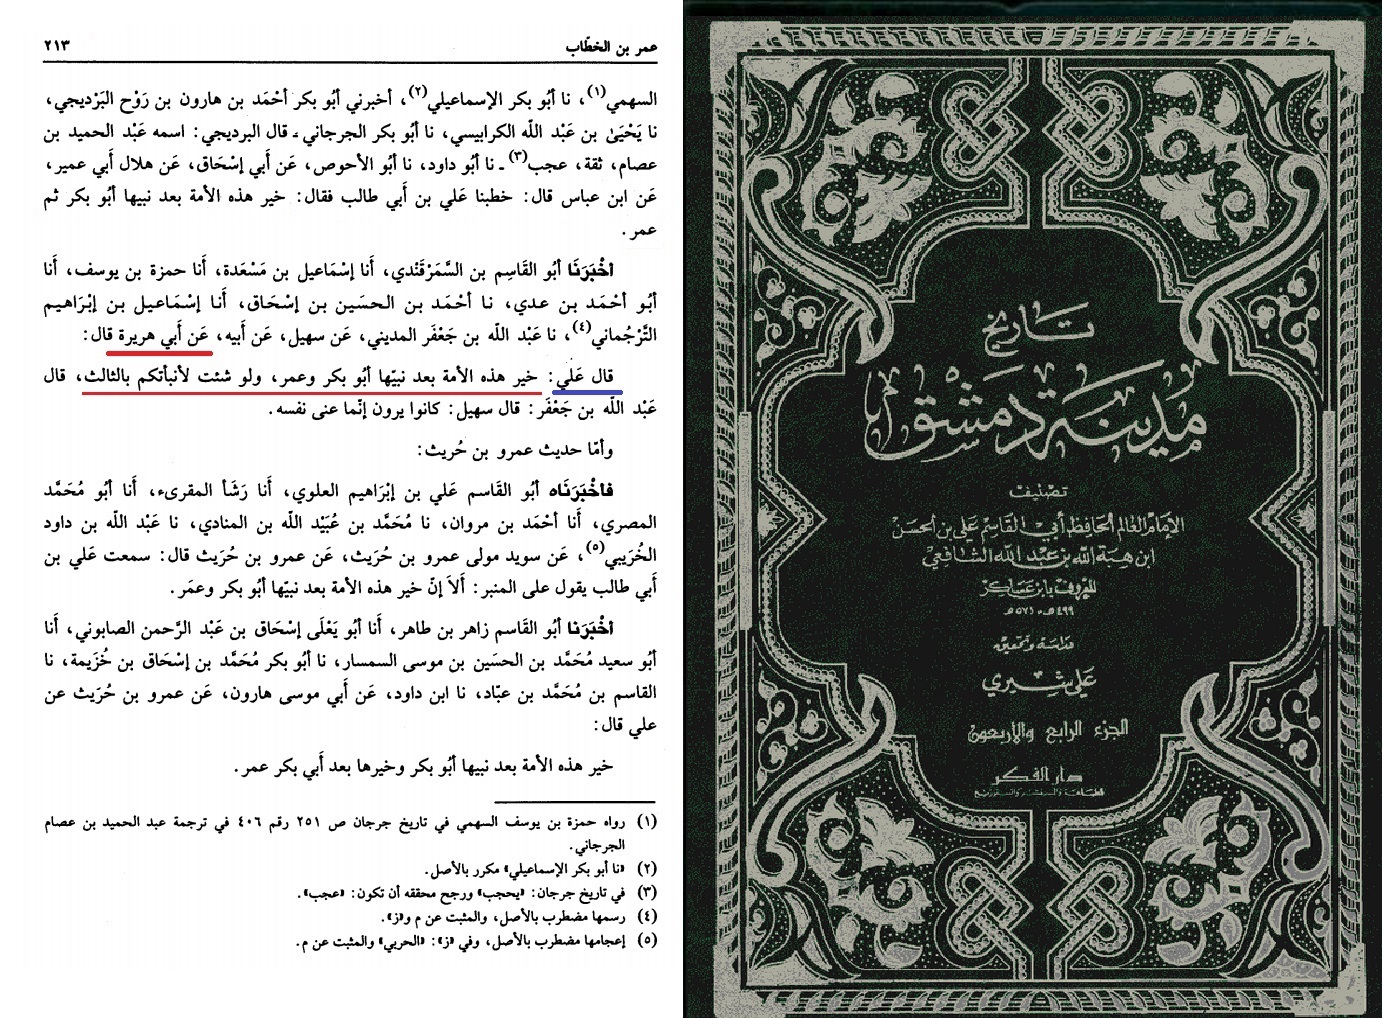 عمر بن الخطّاب
٢١٣
السهمي(١)، نا أبُو بكر الإسماعيلي(٢)، أخبرني أبُو بكر أحْمَد بن هارون بن رَوْح البَرْديجي،
نا يَحْيَىٰ بن عَبْد اللّه الكرابيسي، نا أبُو بكر الجرجاني ـ قال البرديجي: اسمه عَبْد الحميد بن
عصام، ثقة، عجب(٣) ـ نا أبُو داود، نا أبُو الأحوص، عَن أبي إسْحَاق، عَن هلال أبي عمير،
عَن ابن عباس قال: خطبنا عَلي بن أبي طالب فقال: خير هذه الأمة بعد نبيها أبُو بكر ثم
عمر.
أخْبَرَنَا أبُو القَاسِم بن السَّمَرْقَنْدي، أنا إسْمَاعيل بن مَسْعَدة، أنا حمزة بن يوسف، أنا
أبُو أحْمَد بن عدي، نا أحْمَد بن الحسَين بن إسْحَاق، أنا إسْمَاعيل بن إبْرَاهيم
التَّرْجُماني(٤)، نا عَبْد اللّه بن جَعْفَر المديني، عَن سهيل، عَن أبيه، عَن أبي هريرة قال:
قال عَلي: خير هذه الأمة بعد نبيّها أبُو بكر وعمر، ولو شئت لأنبأتكم بالثالث، قال
عَبْد اللّه بن جَعْفَر: قال سهيل: كانوا يرون إنّما عنى نفسه.
وأمّا حديث عمرو بن حُريث:
فأخْبَرَنَاه أبُو القَاسم عَلي بن إبْرَاهيم العلوي، أنا رَشَأ المقرىء، أنا أبُو مُحَمَّد
المصري، أنا أحْمَد بن مروان، نا مُحَمَّد بن عُبَيْد اللّه بن المنادي، نا عَبْد اللّه بن داود
الخُرَيبي(٥)، عَن سويد مولى عمرو بن حُرَيث، عَن عمرو بن حُرَيث قال: سمعت عَلي بن
أبي طالب يقول على المنبر: ألاَ إنّ خير هذه الأمة بعد نبيّها أبُو بكر وعمَر.
أخْبَرَنا أبُو القاسم زاهر بن طاهر، أنا أبُو يَعْلَى إسْحَاق بن عَبْد الرَّحمن الصابوني، أنا
أبُو سعيد مُحَمَّد بن الحسَين بن موسى السمسار، نا أبُو بكر مُحَمَّد بن إسْحَاق بن خُزَيمة، نا
القاسم بن مُحَمَّد بن عبّاد، نا ابن داود، عَن أبي موسى هارون، عَن عمرو بن حُرَيث عن
علي قال:
خير هذه الأمة بعد نبيها أبُو بكر وخيرها بعد أبي بكر عمر.
(١) رواه حمزة بن يوسف السهمي في تاريخ جرجان ص ٢٥١ رقم ٤٠٦ في ترجمة عبد الحميد بن عصام
الجرجاني.
(٢) «نا أبو بكر الإسماعيلي» مكرر بالأصل.
(٣) في تاريخ جرجان: «يحجب» ورجح محققه أن تكون: «عجب».
(٤) رسمها مضطرب بالأصل، والمثبت عن م و«ز».
(٥) إعجامها مضطرب بالأصل، وفي «ز»: «الحربي» والمثبت عن م.
تاريخ
مدينة دمشق
تصنيف
الإمام العالم الحافظ أبي القاسم علي بن الحسن
ابن هبة الله بن عبد الله الشافعي
المعروف بابن عساكر
٤٩٩هـ - ٥٧١هـ
دراسة وتحقيق
علي شيري
الجزء الرابع والأربعون
دار الفكر
للطباعة والنشر والتوزيع